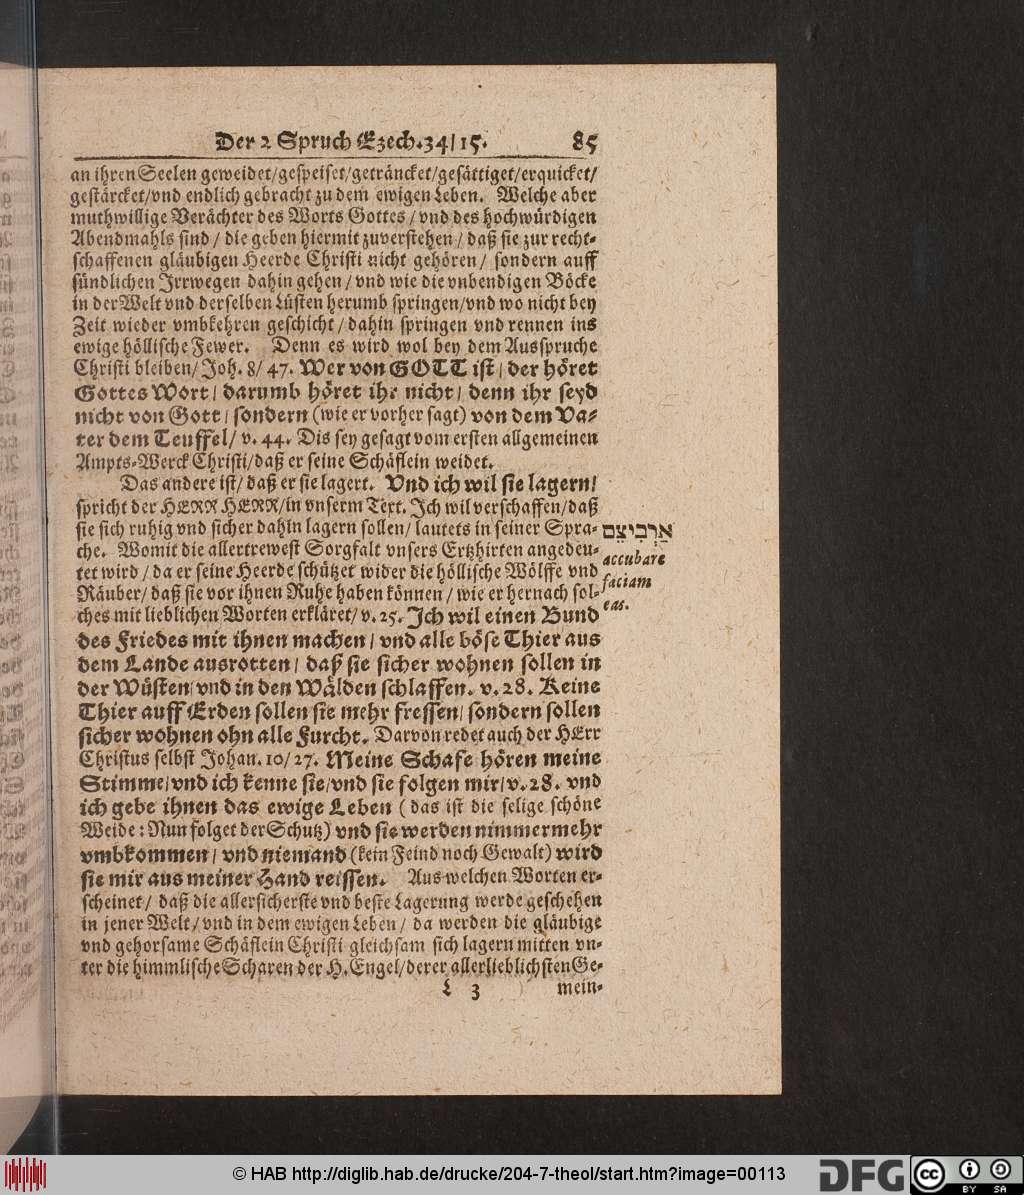 Der 2 Spruch Ezech.34/15. 85
an ihren Seelen geweidet/gespeiset/geträncket/gesättiget/erquicket/
gestärcket/vnd endlich gebracht zu dem ewigen Leben. Welche aber
muthwillige Verächter des Worts Gottes/vnd des hochwürdigen
Abendmahls sind/die geben hiermit zuverstehen/daß sie zur recht-
schaffenen gläubigen Heerde Christi nicht gehören/ sondern auff
sündlichen Irrwegen dahin gehen/vnd wie die vnbendigen Böcke
in der Welt vnd derselben Lüsten herumb springen/vnd wo nicht bey
Zeit wieder vmbkehren geschicht/dahin springen vnd rennen ins
ewige höllische Fewer. Denn es wird wol bey dem Ausspruche
Christi bleiben/Joh. 8/47. Wer von GOTT ist/der höret
Gottes Wort/darumb höret ihr nicht/denn ihr seyd
nicht von Gott/sondern (wie er vorher sagt) von dem Va-
ter dem Teuffel/v. 44. Dis sey gesagt vom ersten allgemeinen
Ampts-Werck Christi/daß er seine Schäflein weidet.
Das andere ist/daß er sie lagert. Vnd ich wil sie lagern/
spricht der HERR HERR/in vnserm Text. Ich wil verschaffen/daß
sie sich ruhig vnd sicher dahin lagern sollen/lautets in seiner Spra-
che. Womit die allertrewest Sorgfalt vnsers Ertzhirten angedeu-
tet wird/da er seine Heerde schützet wider die höllische Wölffe vnd
Räuber/daß sie vor ihnen Ruhe haben können/wie er hernach sol-
ches mit lieblichen Worten erkläret/v.25. Ich wil einen Bund
des Friedes mit ihnen machen/vnd alle böse Thier aus
dem Lande ausrotten/daß sie sicher wohnen sollen in
der Wüsten/vnd in den Wälden schlaffen. v.28. Keine
Thier auff Erden sollen sie mehr fressen/sondern sollen
sicher wohnen ohn alle Furcht. Darvon redet auch der HErr
Christus selbst Johan.10/27. Meine Schafe hören meine
Stimme/vnd ich kenne sie/vnd sie folgen mir/v.28. vnd
ich gebe ihnen das ewige Leben (das ist die selige schöne
Weide: Nun folget der Schutz) vnd sie werden nimmermehr
vmbkommen/vnd niemand (kein Feind noch Gewalt) wird
sie mir aus meiner Hand reissen. Aus welchen Worten er-
scheinet/daß die allersicherste vnd beste Lagerung werde geschehen
in jener Welt/vnd in dem ewigen Leben/da werden die gläubige
vnd gehorsame Schäflein Christi gleichsam sich lagern mitten vn-
ter die himmlische Scharen der H. Engel/derer allerlieblichsten Ge-
L 3 mein-
אַרְבִיצֵם
accubare
faciam
eas.
© HAB http://diglib.hab.de/drucke/204-7-theol/start.htm?image=00113
DFG
cc BY SA